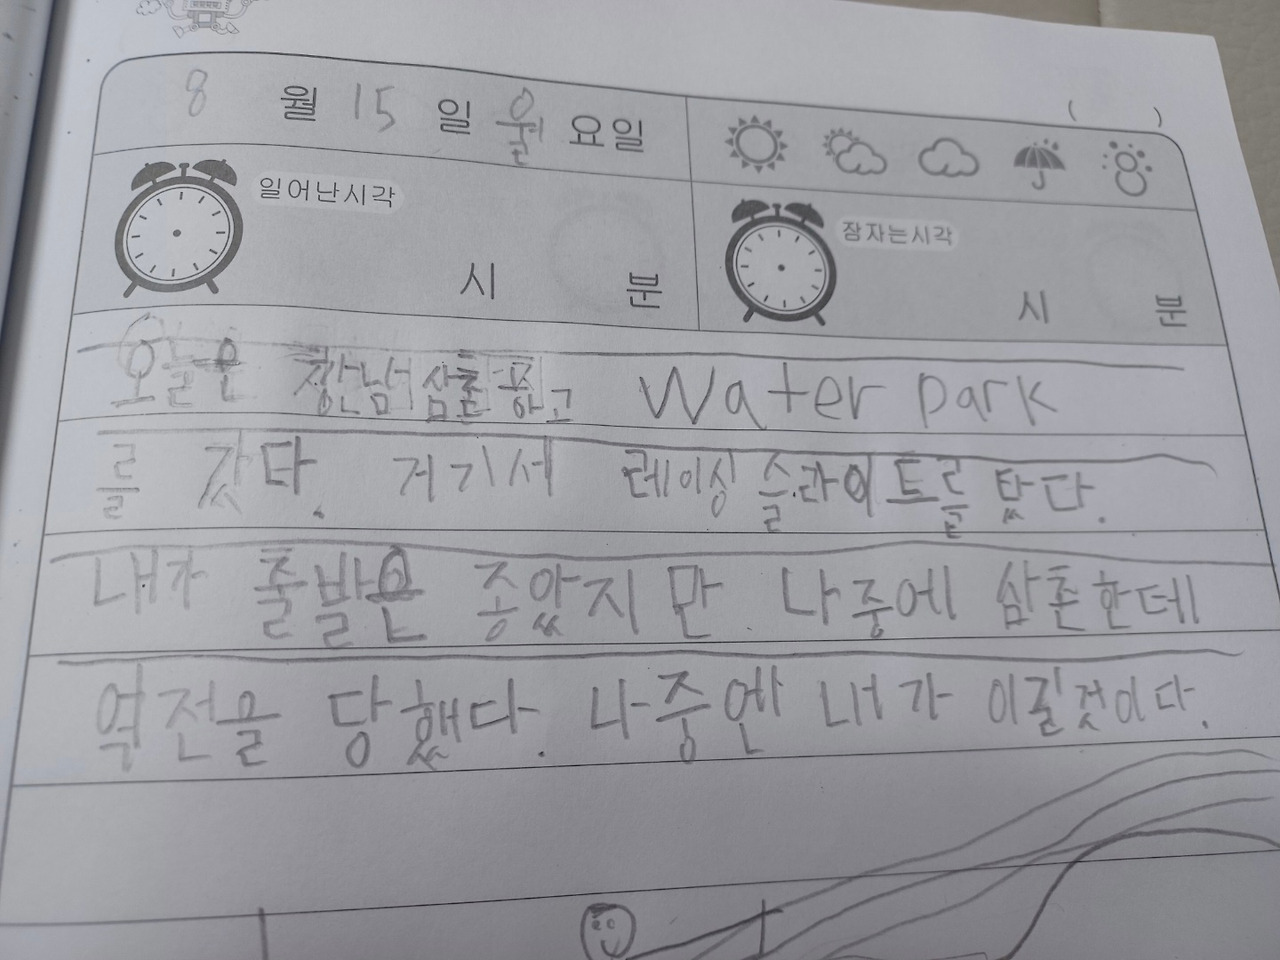 8 월 15 일 월 요일 ( )
일어난시각 시 분
잠자는시각 시 분
오늘은 삼촌 하고 Water park
를 갔다. 거기서 레이싱 슬라이트를 탔다.
내가 출발은 종았지만 나중에 삼촌한데
역전을 당했다. 나중엔 내가 이길것이다.